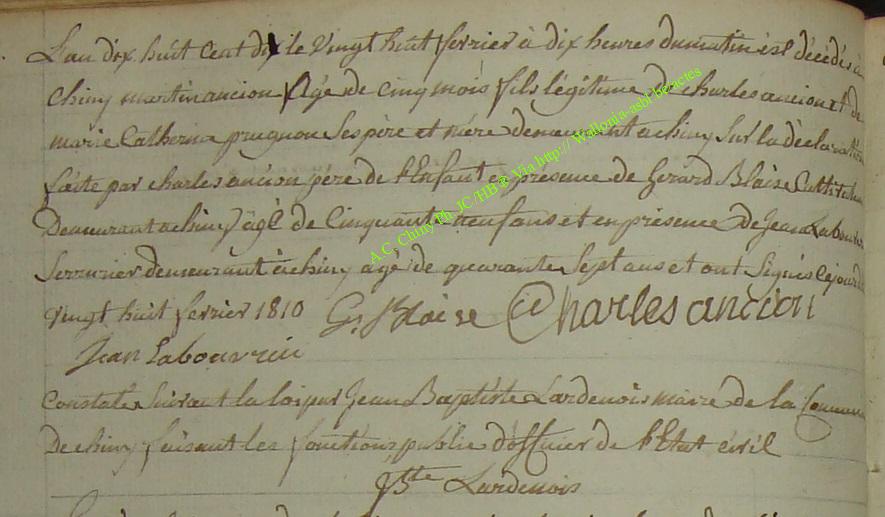 L'an dix huit cent dix le vingt huit fevrier à dix heures du matin est décédés à
chiny martin ancion Agé de cinq mois fils légitime De charles ancion et de
marie Catherna prugnon Ses père et mère demeurant a chiny Sur la déclaration
faite par charles ancion père de l'Enfant en présence de Gerard Blaise Cultivateur
Demeurant a chiny âgé de Cinquante neuf ans et en présence de Jean Labouvrie
Serrurier demeurant à chiny agé de quarante Sept ans et ont Signés le jour de
vingt huit fevrier 1810 G. Blaise Charles ancion
Jean Labouvrie
Constatés suivant la loi par Jean Baptiste Lardenois maire de la Commune
De chiny faisant les fonctions public d'officier de l'Etat civil
JBte Lardenois
A.C. Chiny Ph. JC/HB @ Via http:// Wallonia-asbl.be/actes